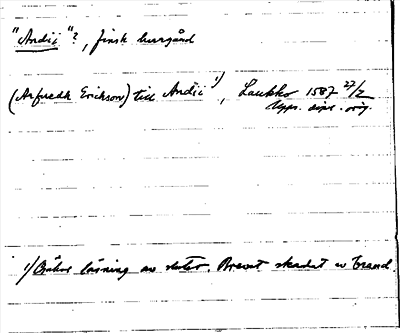 "Andii"?, finsk herrgård
(Arfuedh Erickson) till Andii 1), Laukko 1587 27/2
Upps. dipl. orig.
1) Osäker läsning av slutet. Brevet skadat av brand.